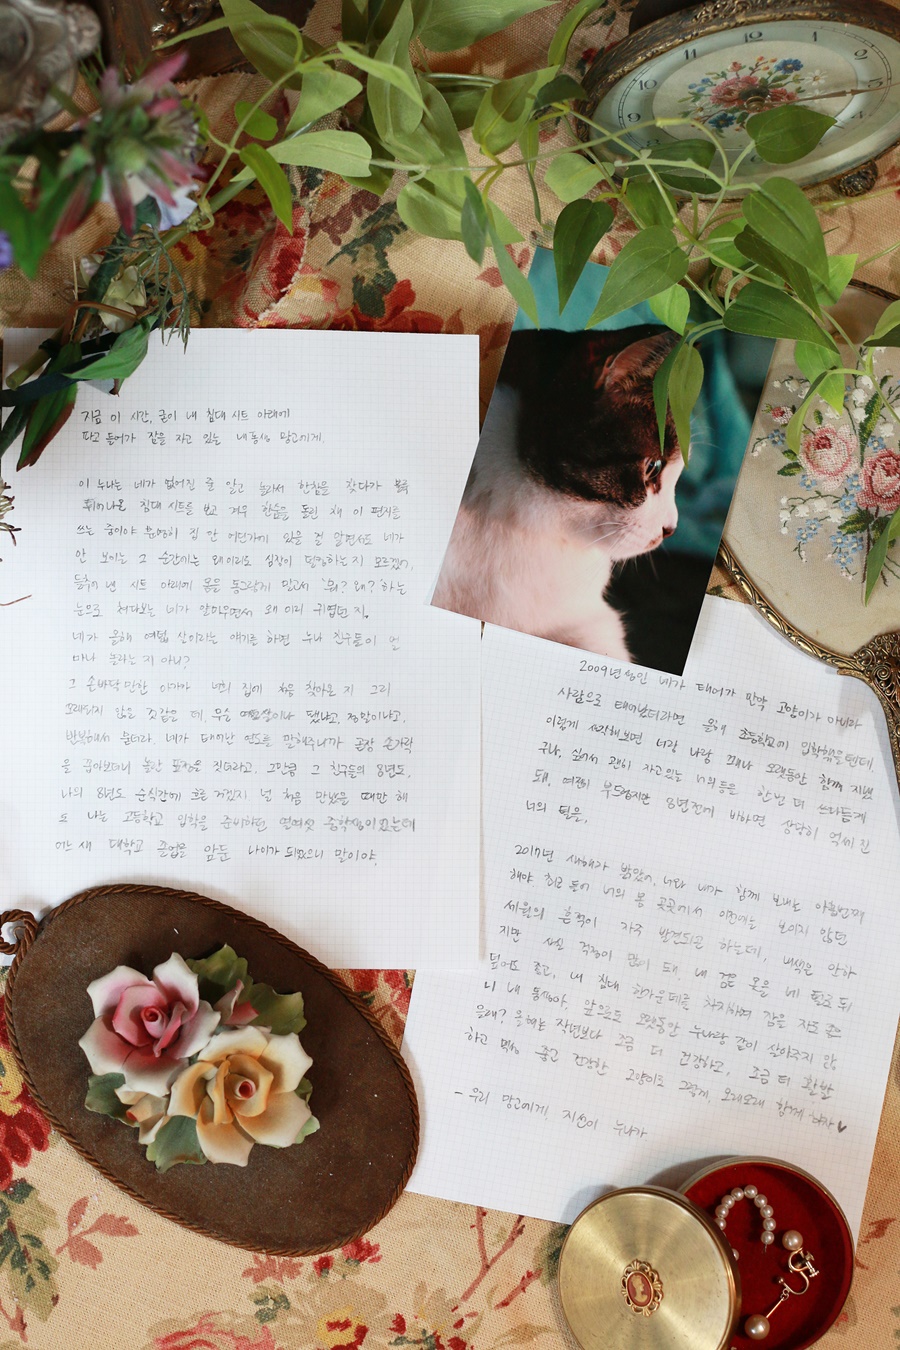 지금 이 시간, 굳이 내 침대 시트 아래에
파고 들어가 잠을 자고 있는 내 동생 망고에게.
이 누나는 네가 없어진 줄 알고 놀라서 한참을 찾다가 볼록
튀어나온 침대 시트를 보고 겨우 한숨을 돌린 채 이 편지를
쓰는 중이야 분명히 집 안 어딘가에 있을 걸 알면서도 네가
안 보이는 그 순간에는 왜 이리도 심장이 덜컹하는지 모르겠어,
들춰 낸 시트 아래에 몸을 동그랗게 말고서 '뭐? 왜?' 하는
눈으로 쳐다보는 네가 얄미우면서 왜 이리 귀엽던지,
네가 올해 여덟 살이라는 얘기를 하면 누나 친구들이 얼
마나 놀라는 지 아니?
그 손바닥만한 아가가 너희 집에 처음 찾아온 지 그리
오래되지 않은 것 같은 데, 무슨 여덟살이나 됐냐고, 정말이냐고,
반복해서 묻더라. 네가 태어난 연도를 말해주니까 곧장 손가락
을 꼽아보더니 놀란 표정을 짓더라고. 그만큼 그 친구들의 8년도,
나의 8년도 순식간에 흐른 거겠지 널 처음 만났을 때만 해
도 나는 고등학교 입학을 준비하던 열여섯 중학생이었는데
어느 새 대학교 졸업을 앞둔 나이가 되었으니 말이야.
2009년생인 네가 태어가 만약 고양이가 아니라
사람으로 태어났더라면 올해 초등학교에 입학했을텐데.
이렇게 생각해보면 너랑 나랑 꽤나 오랫동안 함께 지냈
구나, 싶어서 괜히 자고있는 너의 등을 한 번 더 쓰다듬게
돼, 여전히 부드럽지만 8년 전에 비하면 상당히 억세진
너의 털을,
2017년 새해가 밝았어. 너와 내가 함께 보내는 아홉번째
해야. 최근 들어 너의 몸 곳곳에서 이전에는 보이지 않던
세월의 흔적이 자주 발견되곤 하는데, 내색은 안하
지만 사실 걱정이 많이 돼 내 검은 옷을 네 털로 뒤
덮어도 좋고, 내 침대 한가운데를 차지하며 잠을 자도 좋으
니 내 동생아, 앞으로도 오랫동안 누나랑 같이 살아주지 않
을래? 올해는 작년보다 조금 더 건강하고, 조금 더 활발
하고 멋진 고양이로 그렇게, 오래오래 함께 하자♥
- 우리 망고에게, 지선이 누나가